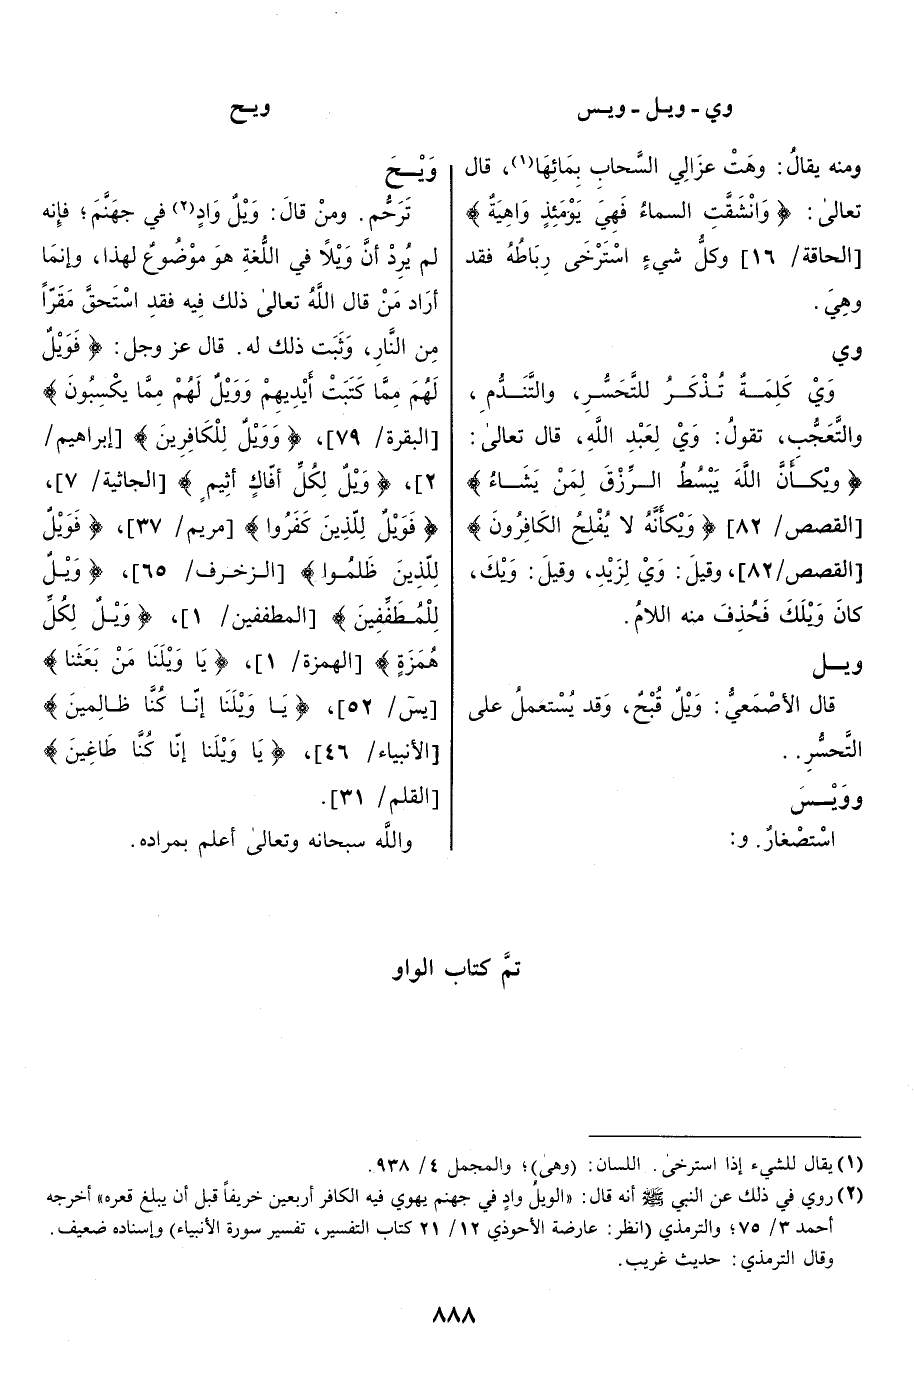 وي - ويـل - ويـس
ويـح
ومنه يقالُ: وهَتْ عزَالِي السَّحابِ بِمَائِهَا(١)، قال
تعالىٰ: ﴿ وَانْشَقَّتِ السماءُ فَهِيَ يَوْمَئِذٍ وَاهِيَةٌ ﴾
[الحاقة/ ١٦] وكلُّ شيءٍ اسْتَرْخَى رِبَاطُهُ فقد
وهِيَ.
وي
وَيْ كَلِمَــةٌ تُــذْكَــرُ للتَّحَسُّـرِ، والتَّنَـدُّمِ،
والتَّعَجُّبِ، تقولُ: وَيْ لِعَبْدِ اللَّهِ، قال تعالىٰ:
﴿ ويْكَــأَنَّ اللَّهَ يَبْسُطُ الــرِّزْقَ لِمَنْ يَشَــاءُ ﴾
[القصص/ ٨٢] ﴿ وَيْكَأَنَّهُ لا يُفْلِحُ الكَافِرُونَ ﴾
[القصص/٨٢]، وقيلَ: وَيْ لِزَيْدٍ، وقيلَ: وَيْكَ،
كانَ وَيْلَكَ فَحُذِفَ منه اللامُ.
ويــل
قال الأصْمَعيُّ: وَيْلٌ قُبْحٌ، وَقد يُسْتَعملُ على
التَّحسُّرِ. .
ووَيْــسَ
اسْتِصْغارٌ. و:
وَيْــحَ
تَرَحُّم. ومنْ قالَ: وَيْلٌ وَادٍ(٢) في جهَنَّمَ؛ فإنه
لم يُرِدْ أنَّ وَيْلًا في اللُّغةِ هوَ موْضُوعٌ لهذا، وإنمَا
أرَاد مَنْ قال اللَّهُ تعالىٰ ذلك فيه فقدِ اسْتَحقَّ مَقَرّاً
مِن النَّارِ، وَثَبَت ذلك له. قال عز وجل: ﴿ فَوَيْلٌ
لَهُمْ مِمَّا كَتَبَتْ أَيْدِيهِمْ وَوَيْلٌ لَهُمْ مِمَّا يكْسِبُونَ ﴾
[البقرة/ ٧٩]، ﴿ وَوَيْلٌ لِلْكَافِرِينَ ﴾ [إبراهيم/
٢]، ﴿ وَيْلٌ لِكُلِّ أفّاكٍ أثِيمٍ ﴾ [الجاثية/ ٧]،
﴿ فَوَيْلٌ لِلَّذِينَ كَفَرُوا ﴾ [مريم/ ٣٧]، ﴿ فَوَيْلٌ
لِلَّذِينَ ظَلَمُــوا ﴾ [الـزخـرف/ ٦٥]، ﴿ وَيْـلٌ
لِلْمُـطَفِّفِينَ ﴾ [المطففين/ ١]، ﴿ وَيْـلٌ لِكُلِّ
هُمَزَةٍ ﴾ [الهمزة/ ١]، ﴿ يَا وَيْلَنَا مَنْ بَعَثَنا ﴾
[يسۤ/ ٥٢]، ﴿ يَــا وَيْلَنَا إنّـا كُنَّا ظَـالِمِينَ ﴾
[الأنبياء/ ٤٦]، ﴿ يَا وَيْلَنا إنّا كُنَّا طَاغِينَ ﴾
[القلم/ ٣١].
واللَّه سبحانه وتعالىٰ أعلم بمراده.
تمَّ كتاب الواو
(١) يقال للشيء إذا استرخىٰ. اللسان: (وهىٰ)؛ والمجمل ٤/ ٩٣٨.
(٢) روي في ذلك عن النبي ﷺ أنه قال: «الويلُ وادٍ في جهنم يهوي فيه الكافر أربعين خريفاً قبل أن يبلغ قعره» أخرجه
أحمد ٣/ ٧٥؛ والترمذي (انظر: عارضة الأحوذي ١٢/ ٢١ كتاب التفسير، تفسير سورة الأنبياء) وإسناده ضعيف.
وقال الترمذي: حديث غريب.
٨٨٨